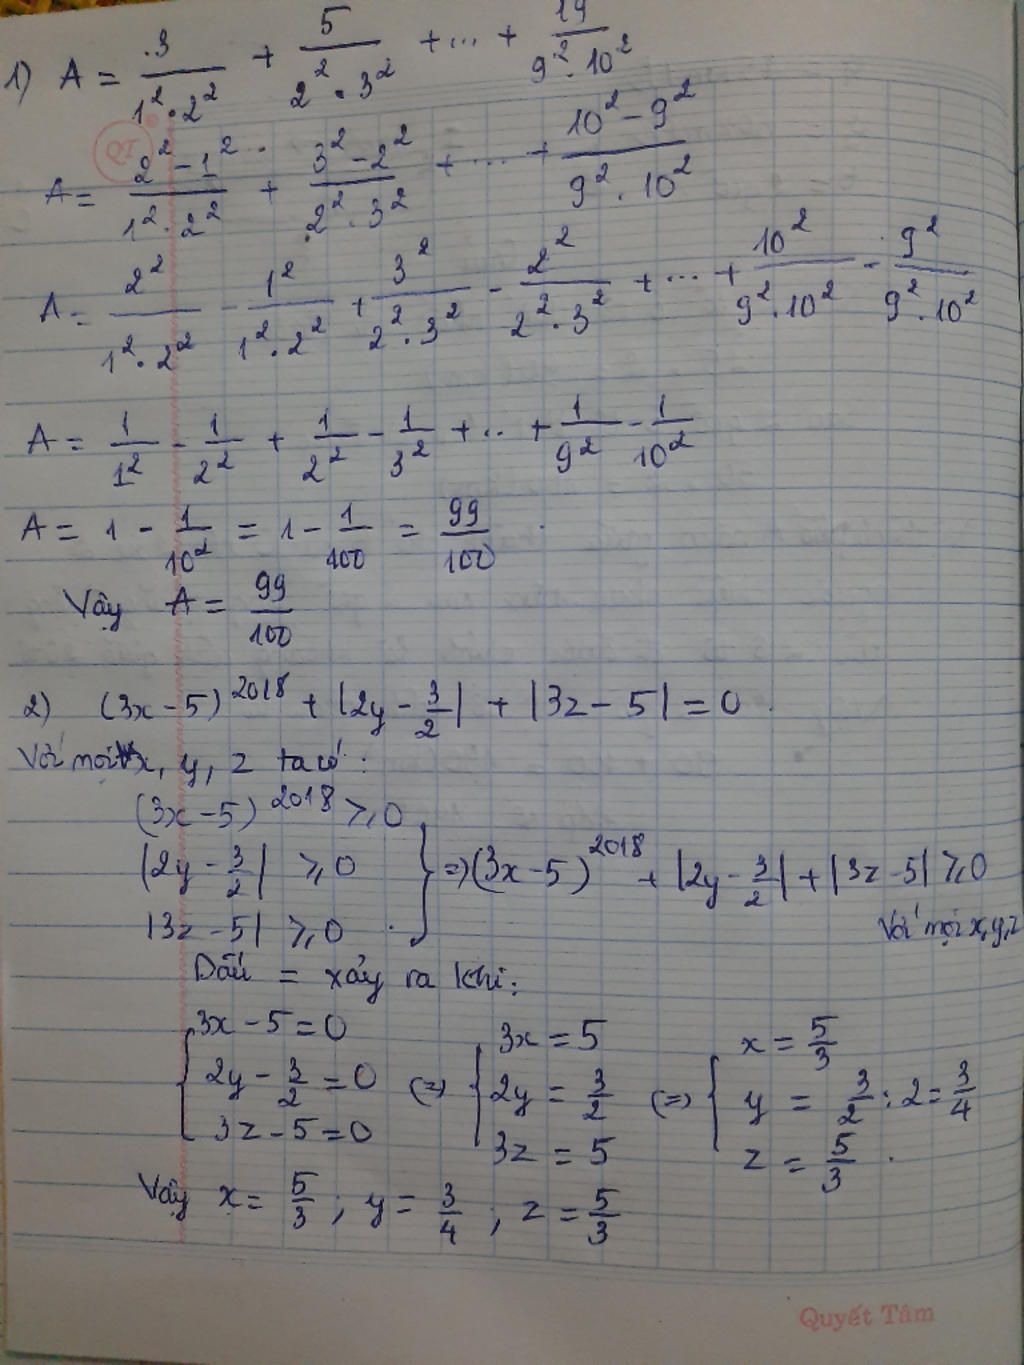 1) A = 3/(1².2²) + 5/(2².3²) + ... + 19/(9².10²)
QT
A = (2² - 1²)/(1².2²) + (3² - 2²)/(2².3²) + ... + (10² - 9²)/(9².10²)
A = 2²/(1².2²) - 1²/(1².2²) + 3²/(2².3²) - 2²/(2².3²) + ... + 10²/(9².10²) - 9²/(9².10²)
A = 1/1² - 1/2² + 1/2² - 1/3² + .. + 1/9² - 1/10²
A = 1 - 1/10² = 1 - 1/100 = 99/100
Vậy A = 99/100
2) (3x - 5)²⁰¹⁸ + |2y - 3/2| + |3z - 5| = 0
Với mọi x, y, z ta có:
(3x - 5)²⁰¹⁸ ≥ 0
|2y - 3/2| ≥ 0 } => (3x - 5)²⁰¹⁸ + |2y - 3/2| + |3z - 5| ≥ 0
|3z - 5| ≥ 0 Với mọi x, y, z
Dấu = xảy ra khi:
{ 3x - 5 = 0 { 3x = 5 { x = 5/3
2y - 3/2 = 0 (=) 2y = 3/2 (=) y = 3/2 : 2 = 3/4
3z - 5 = 0 3z = 5 z = 5/3
Vậy x = 5/3 ; y = 3/4 , z = 5/3
Quyết Tâm